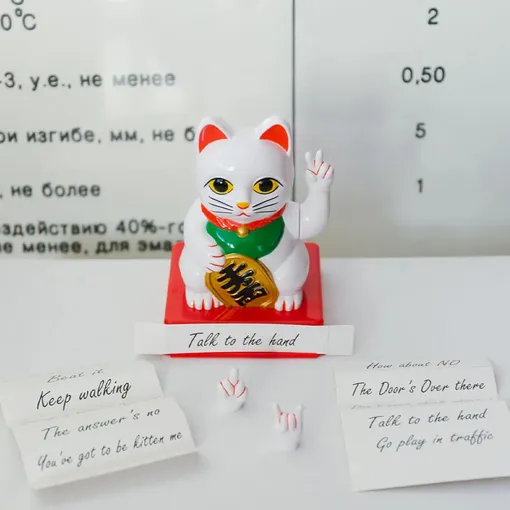 0°C
2
-3, у.е., не менее
0,50
ри изгибе, мм, не б
5
, не более
1
здействию 40%-г
е менее, для эма
Talk to the hand
Beat it
Keep walking
The answer's no
You've got to be kitten me
How about NO
The Door's Over there
Talk to the hand
Go play in traffic